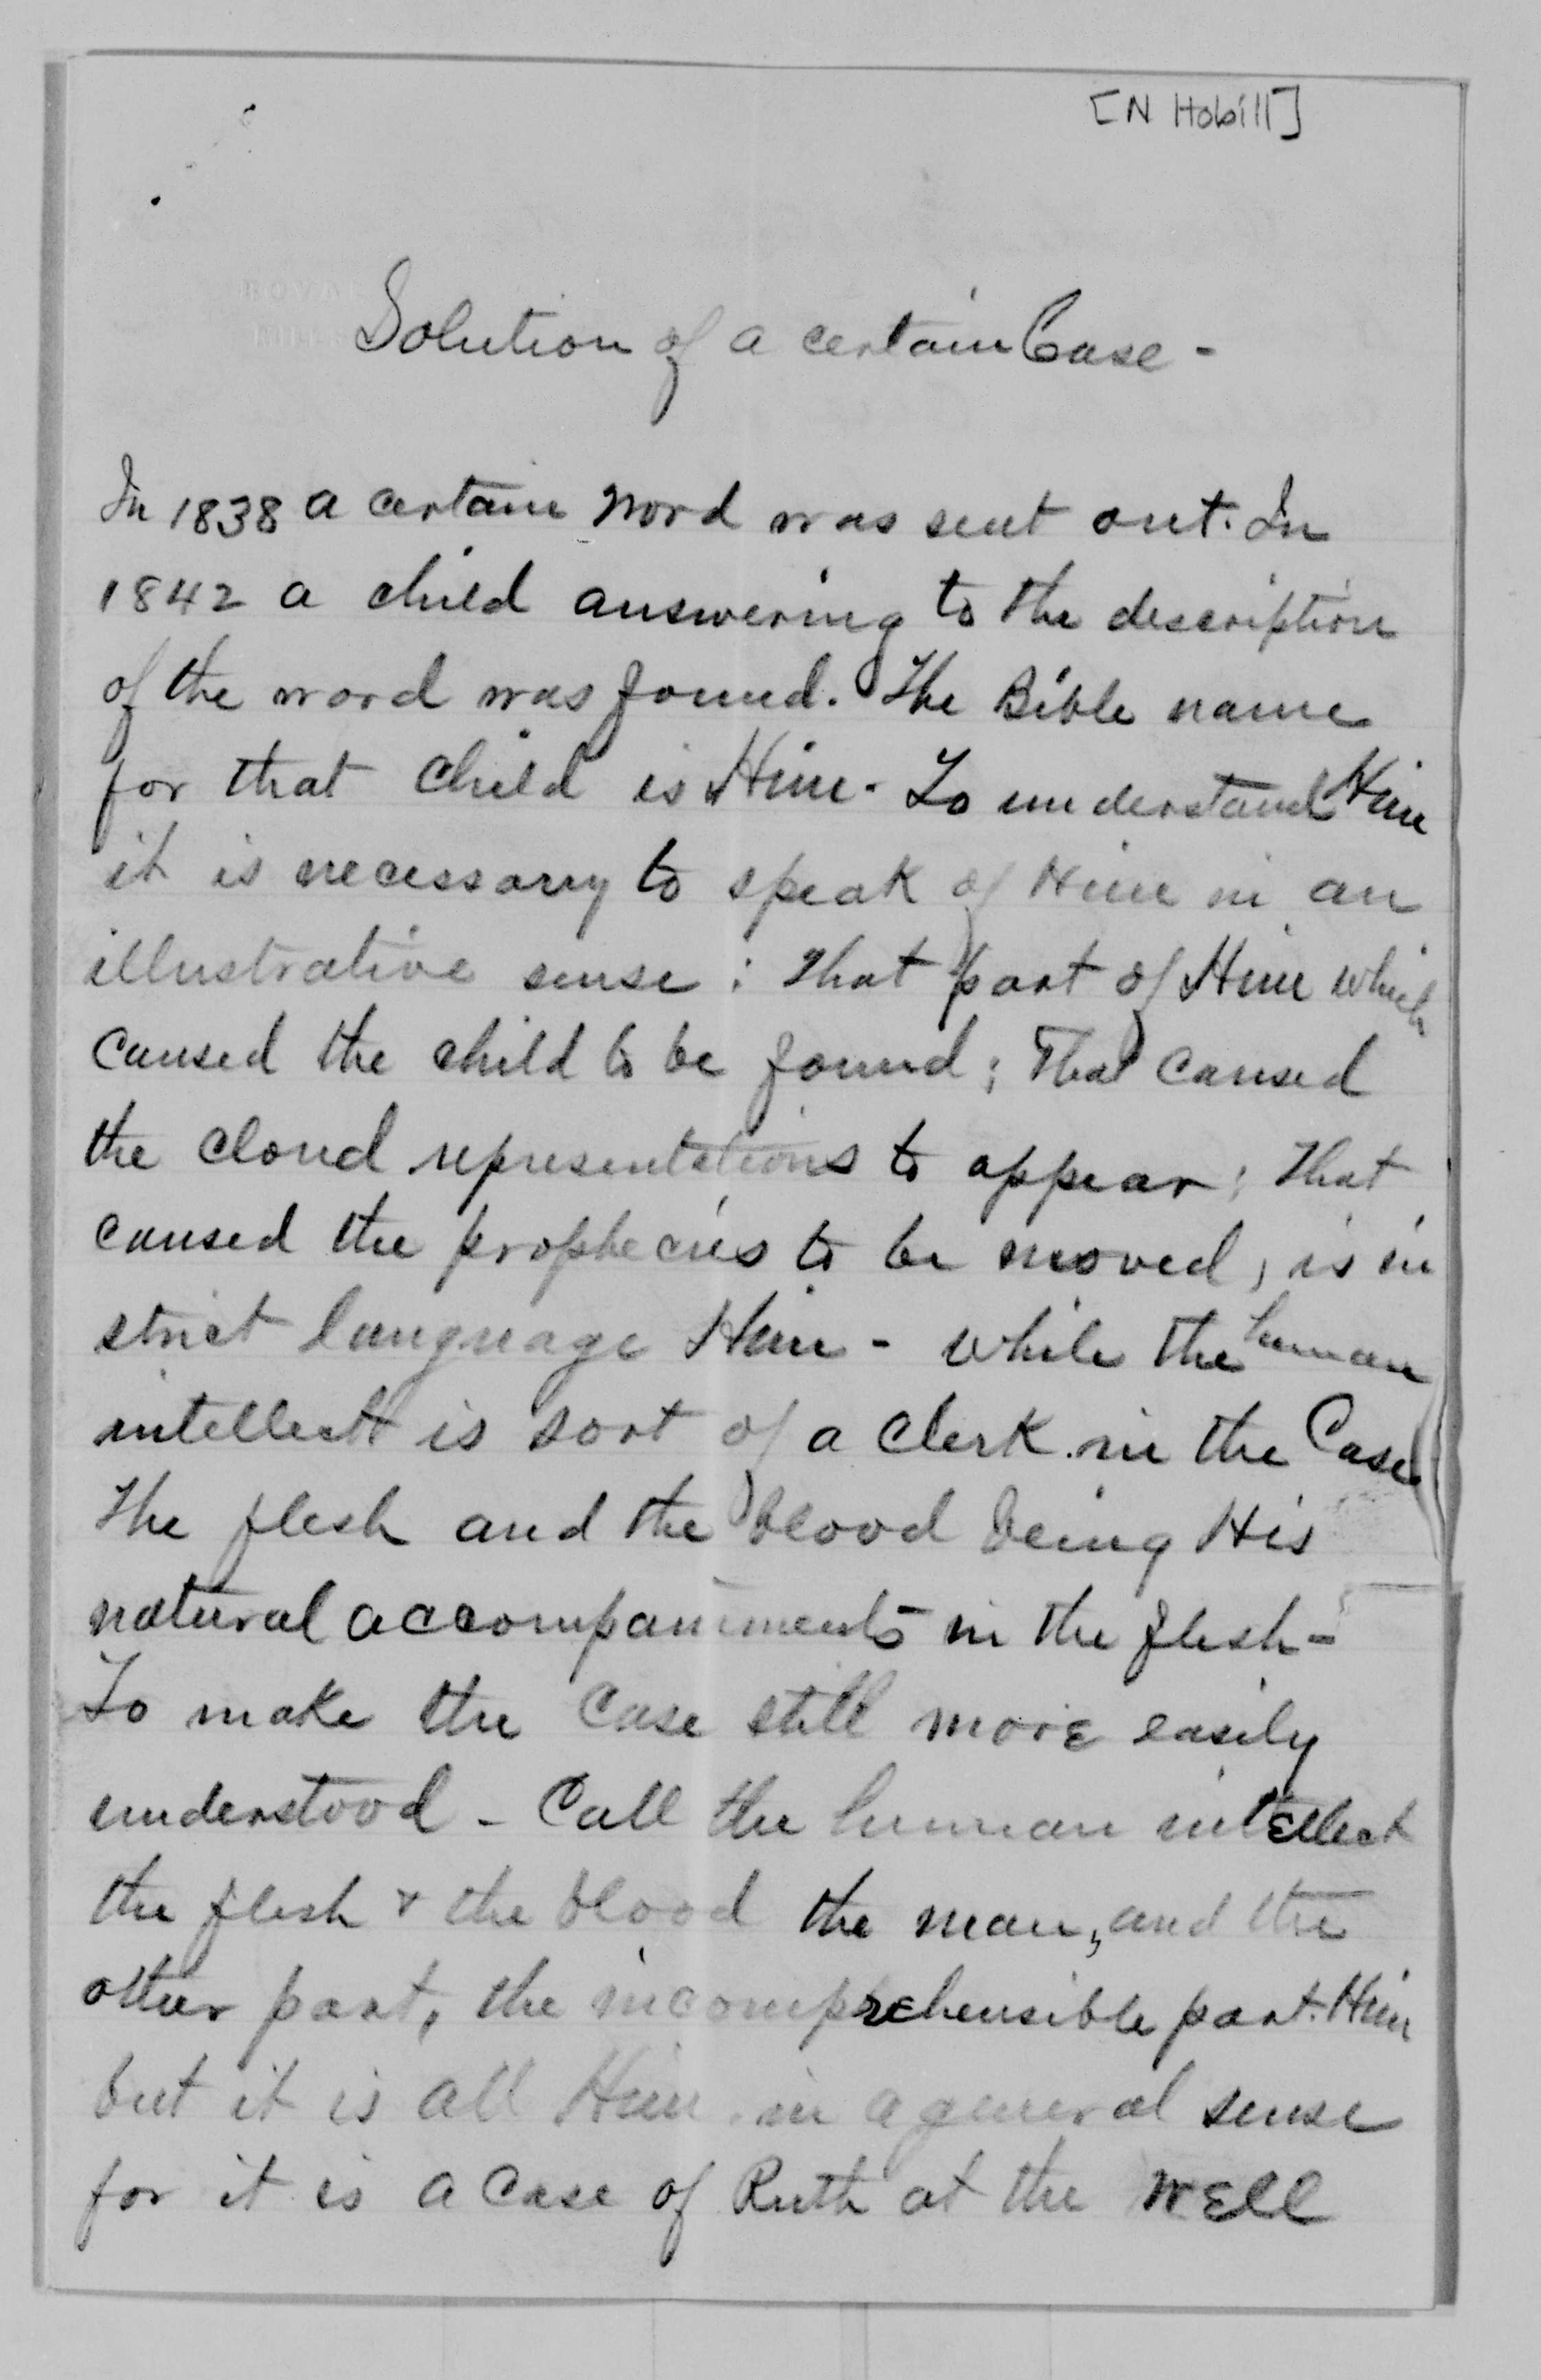 [N Hobill]
Solution of a certain Case -
In 1838 a certain word was sent out. In
1842 a child answering to the description
of the word was found. The Bible name
for that child is Him. To understand Him
it is necessary to speak of Him in an
illustrative sense: That part of Him which
caused the child to be found; That caused
the cloud representations to appear; that
caused the prophecies to be moved, is in
strict language Him - while the human
intellect is sort of a clerk in the Case
The flesh and the blood being His
natural accompaniments in the flesh-
To make the case still more easily
understood - Call the human intellect
the flesh & the blood the man, and the
other part, the incomprehensible part. Him
but it is all Him in a general sense
for it is a case of Ruth at the well